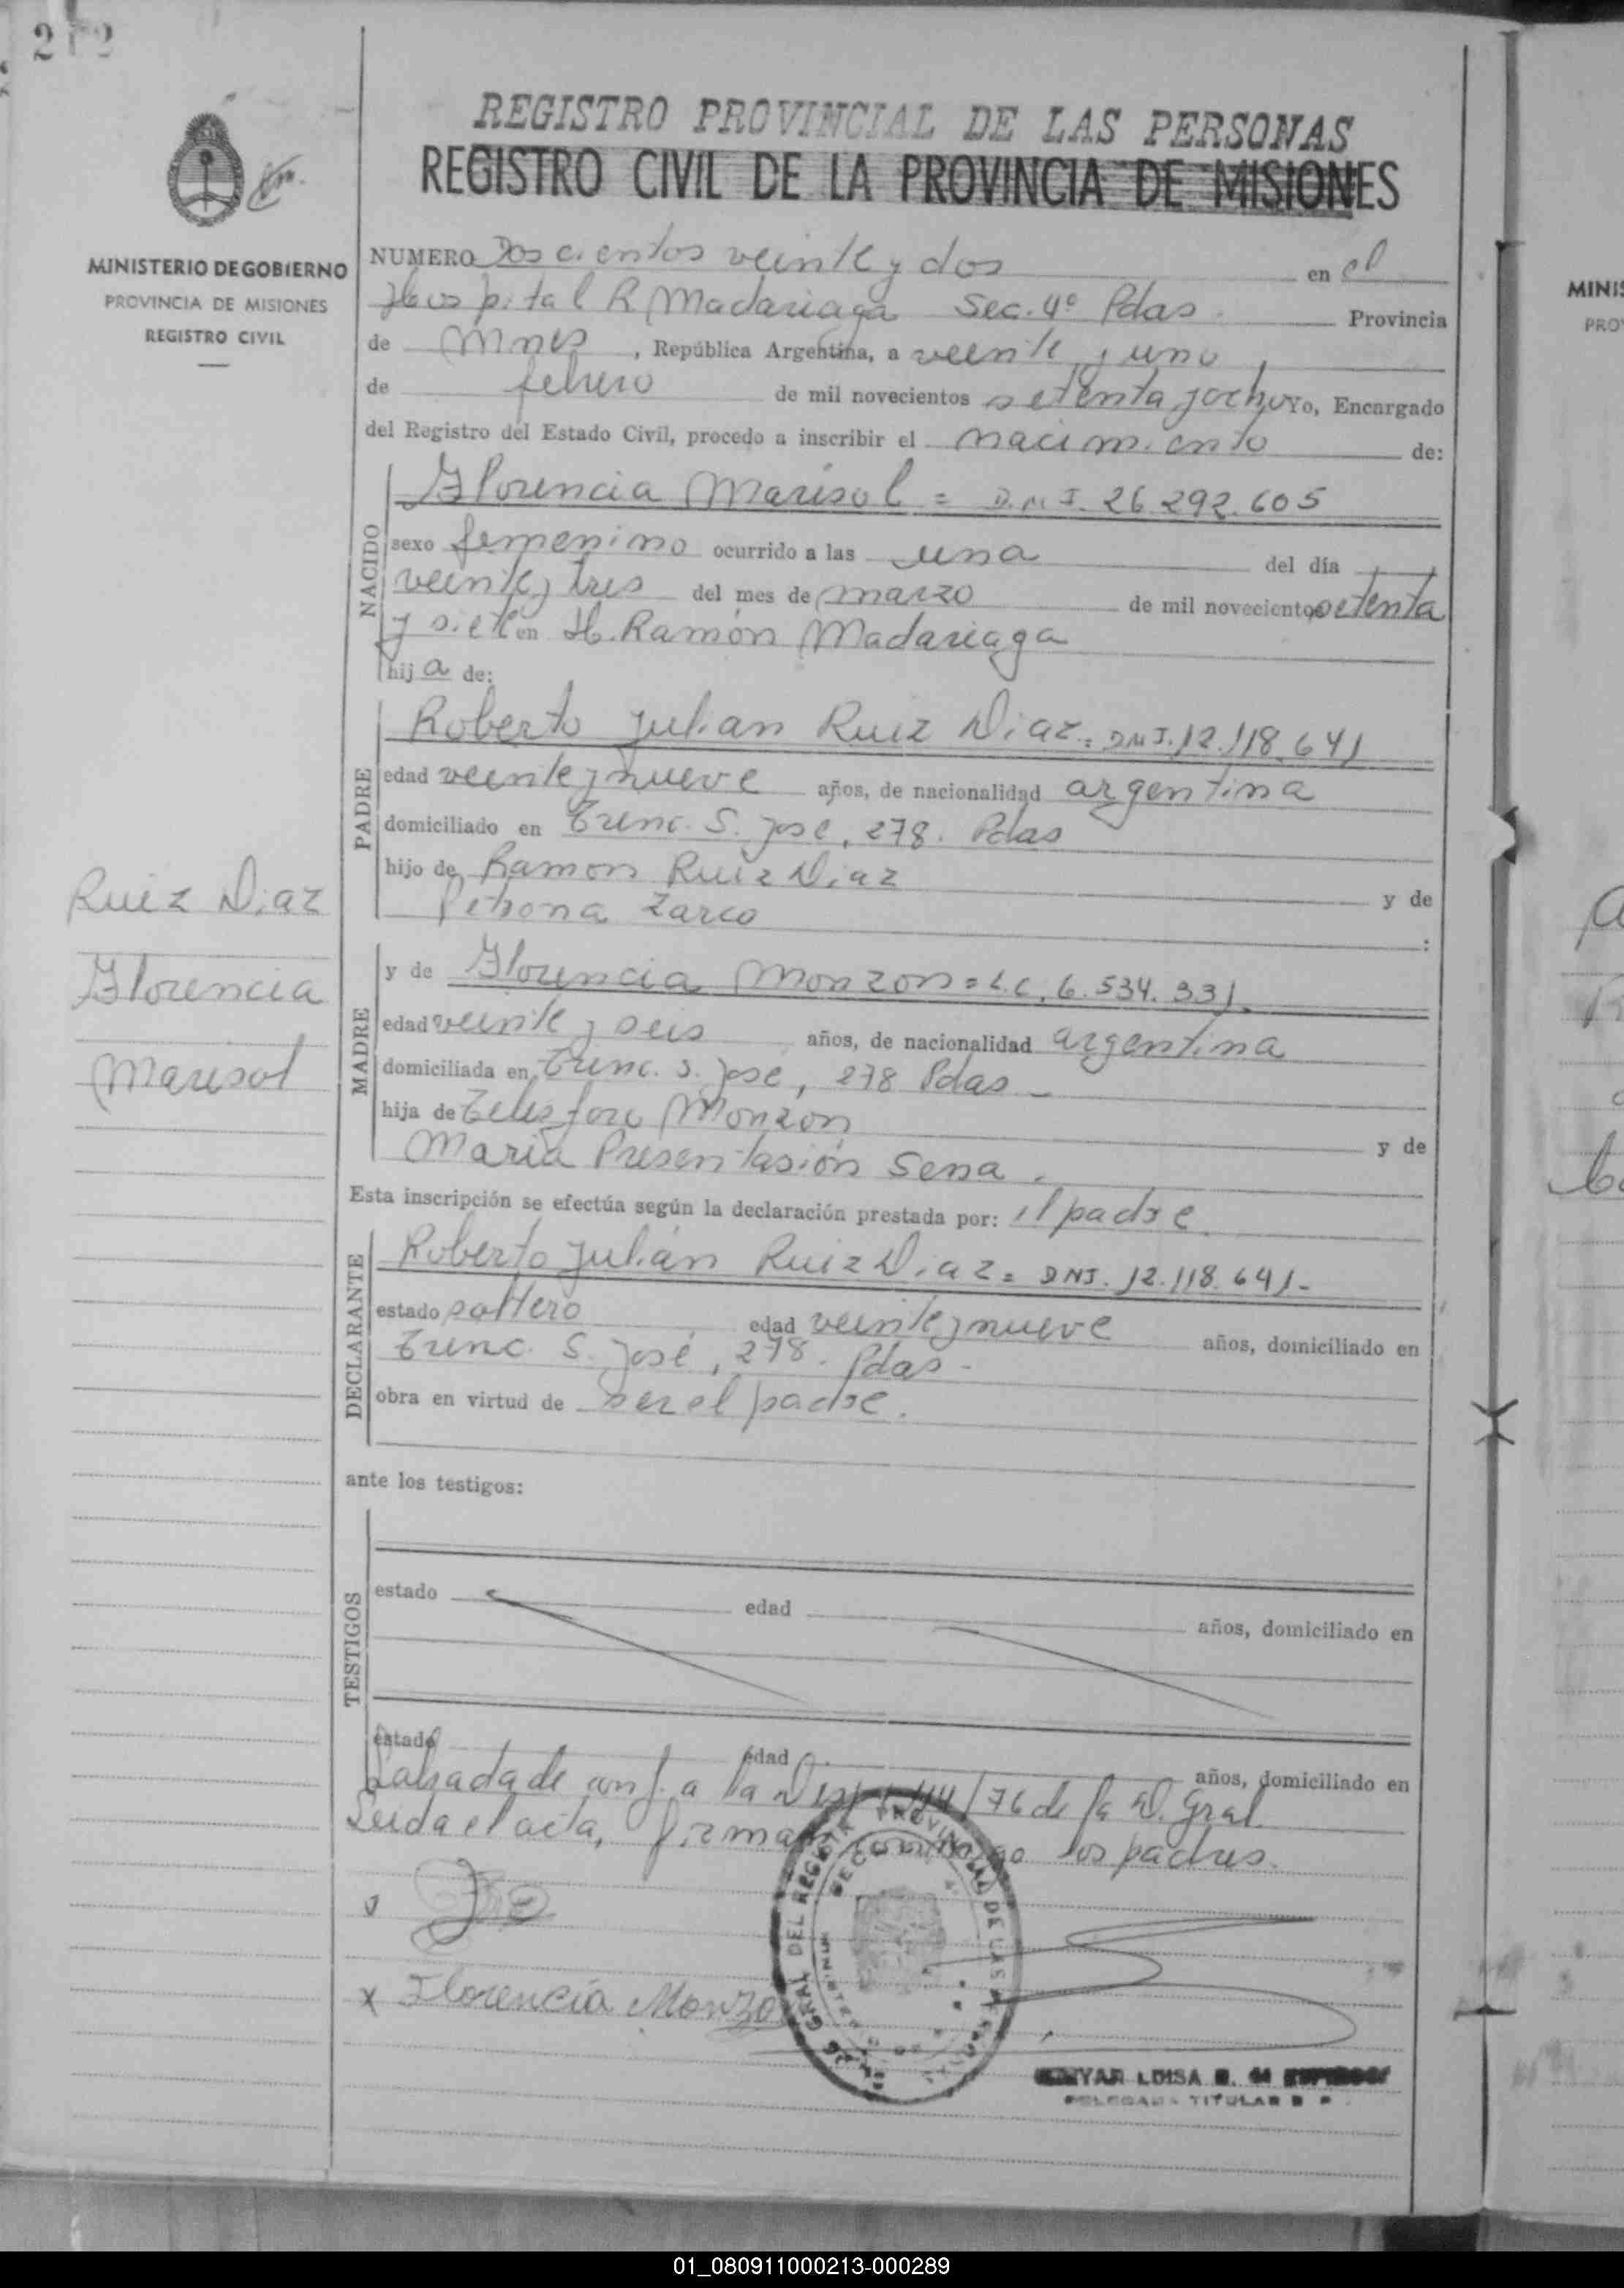 212
REGISTRO PROVINCIAL DE LAS PERSONAS
REGISTRO CIVIL DE LA PROVINCIA DE MISIONES
MINISTERIO DE GOBIERNO
PROVINCIA DE MISIONES
REGISTRO CIVIL
NUMERO Doscientos veinte y dos en el
Hospital R Madariaga Sec. 4º Pdas. Provincia
de Mnes, República Argentina, a veinte y uno
de febrero de mil novecientos setenta y ocho Yo, Encargado
del Registro del Estado Civil, procedo a inscribir el nacimiento de:
NACIDO
Florencia Marisol = D.N.I. 26.292.605
sexo femenino ocurrido a las una del día
veinte y tres del mes de marzo de mil novecientos setenta
y siete en H. Ramón Madariaga
hija de:
PADRE
Roberto Julian Ruiz Diaz = DNI. 12.118.641
edad veinte y nueve años, de nacionalidad argentina
domiciliado en Trinc. S. José, 278. Pdas
hijo de Ramon Ruiz Diaz y de
Petrona Zarco :
MADRE
y de Florencia Monzon = L.C. 6.534.331.
edad veinte y seis años, de nacionalidad argentina
domiciliada en Trinc. S. José, 278 Pdas -
hija de Telesforo Monzon y de
Maria Presentasión Sena.
Ruiz Diaz
Florencia
Marisol
Esta inscripción se efectúa según la declaración prestada por: el padre.
DECLARANTE
Roberto Julián Ruiz Diaz = DNI. 12.118.641-
estado soltero edad veinte y nueve años, domiciliado en
Trinc. S. José, 278. Pdas -
obra en virtud de ser el padre.
ante los testigos:
TESTIGOS
estado edad años, domiciliado en
estado edad años, domiciliado en
Labrada de conf. a la 44/76 de la D. Gral.
Leida el acta, firman conmigo los padres.
x Florencia Monzon
LUISA
TITULAR
01_080911000213-000289
MINIS
PRO